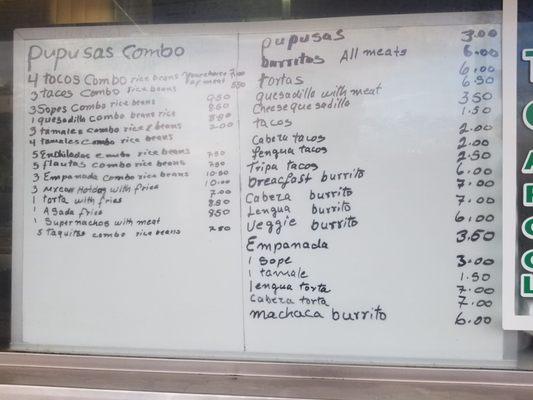 Pupusas Combo
4 tacos Combo rice beans Your choice of any meat 7.00
3 tacos Combo rice beans 5.50
3 Sopes Combo rice beans 9.50
1 quesadilla combo beans rice 8.50
3 tamales combo rice & beans 8.50
4 tamales combo rice beans 2.00
5 Enchiladas Combo rice beans 7.50
5 flautas combo rice beans 7.50
3 Empanada Combo rice beans 10.50
3 Mexican Hotdog with fries 10.00
1 torta with fries 7.00
1 Asada fries 8.50
1 Supernachos with meat 8.50
5 Taquitos combo rice beans 7.50
pupusas 3.00
burritos All meats 6.00
tortas 6.00
quesadilla with meat 6.50
Cheese quesadilla 3.50
tacos 1.50
Cabeza tacos 2.00
lengua tacos 2.00
Tripa tacos 2.50
breacfast burrito 6.00
Cabeza burrito 7.00
Lengua burrito 7.00
Veggie burrito 6.00
Empanada 3.50
1 Sope 3.00
1 tamale 1.50
lengua torta 7.00
Cabeza torta 7.00
machaca burrito 6.00